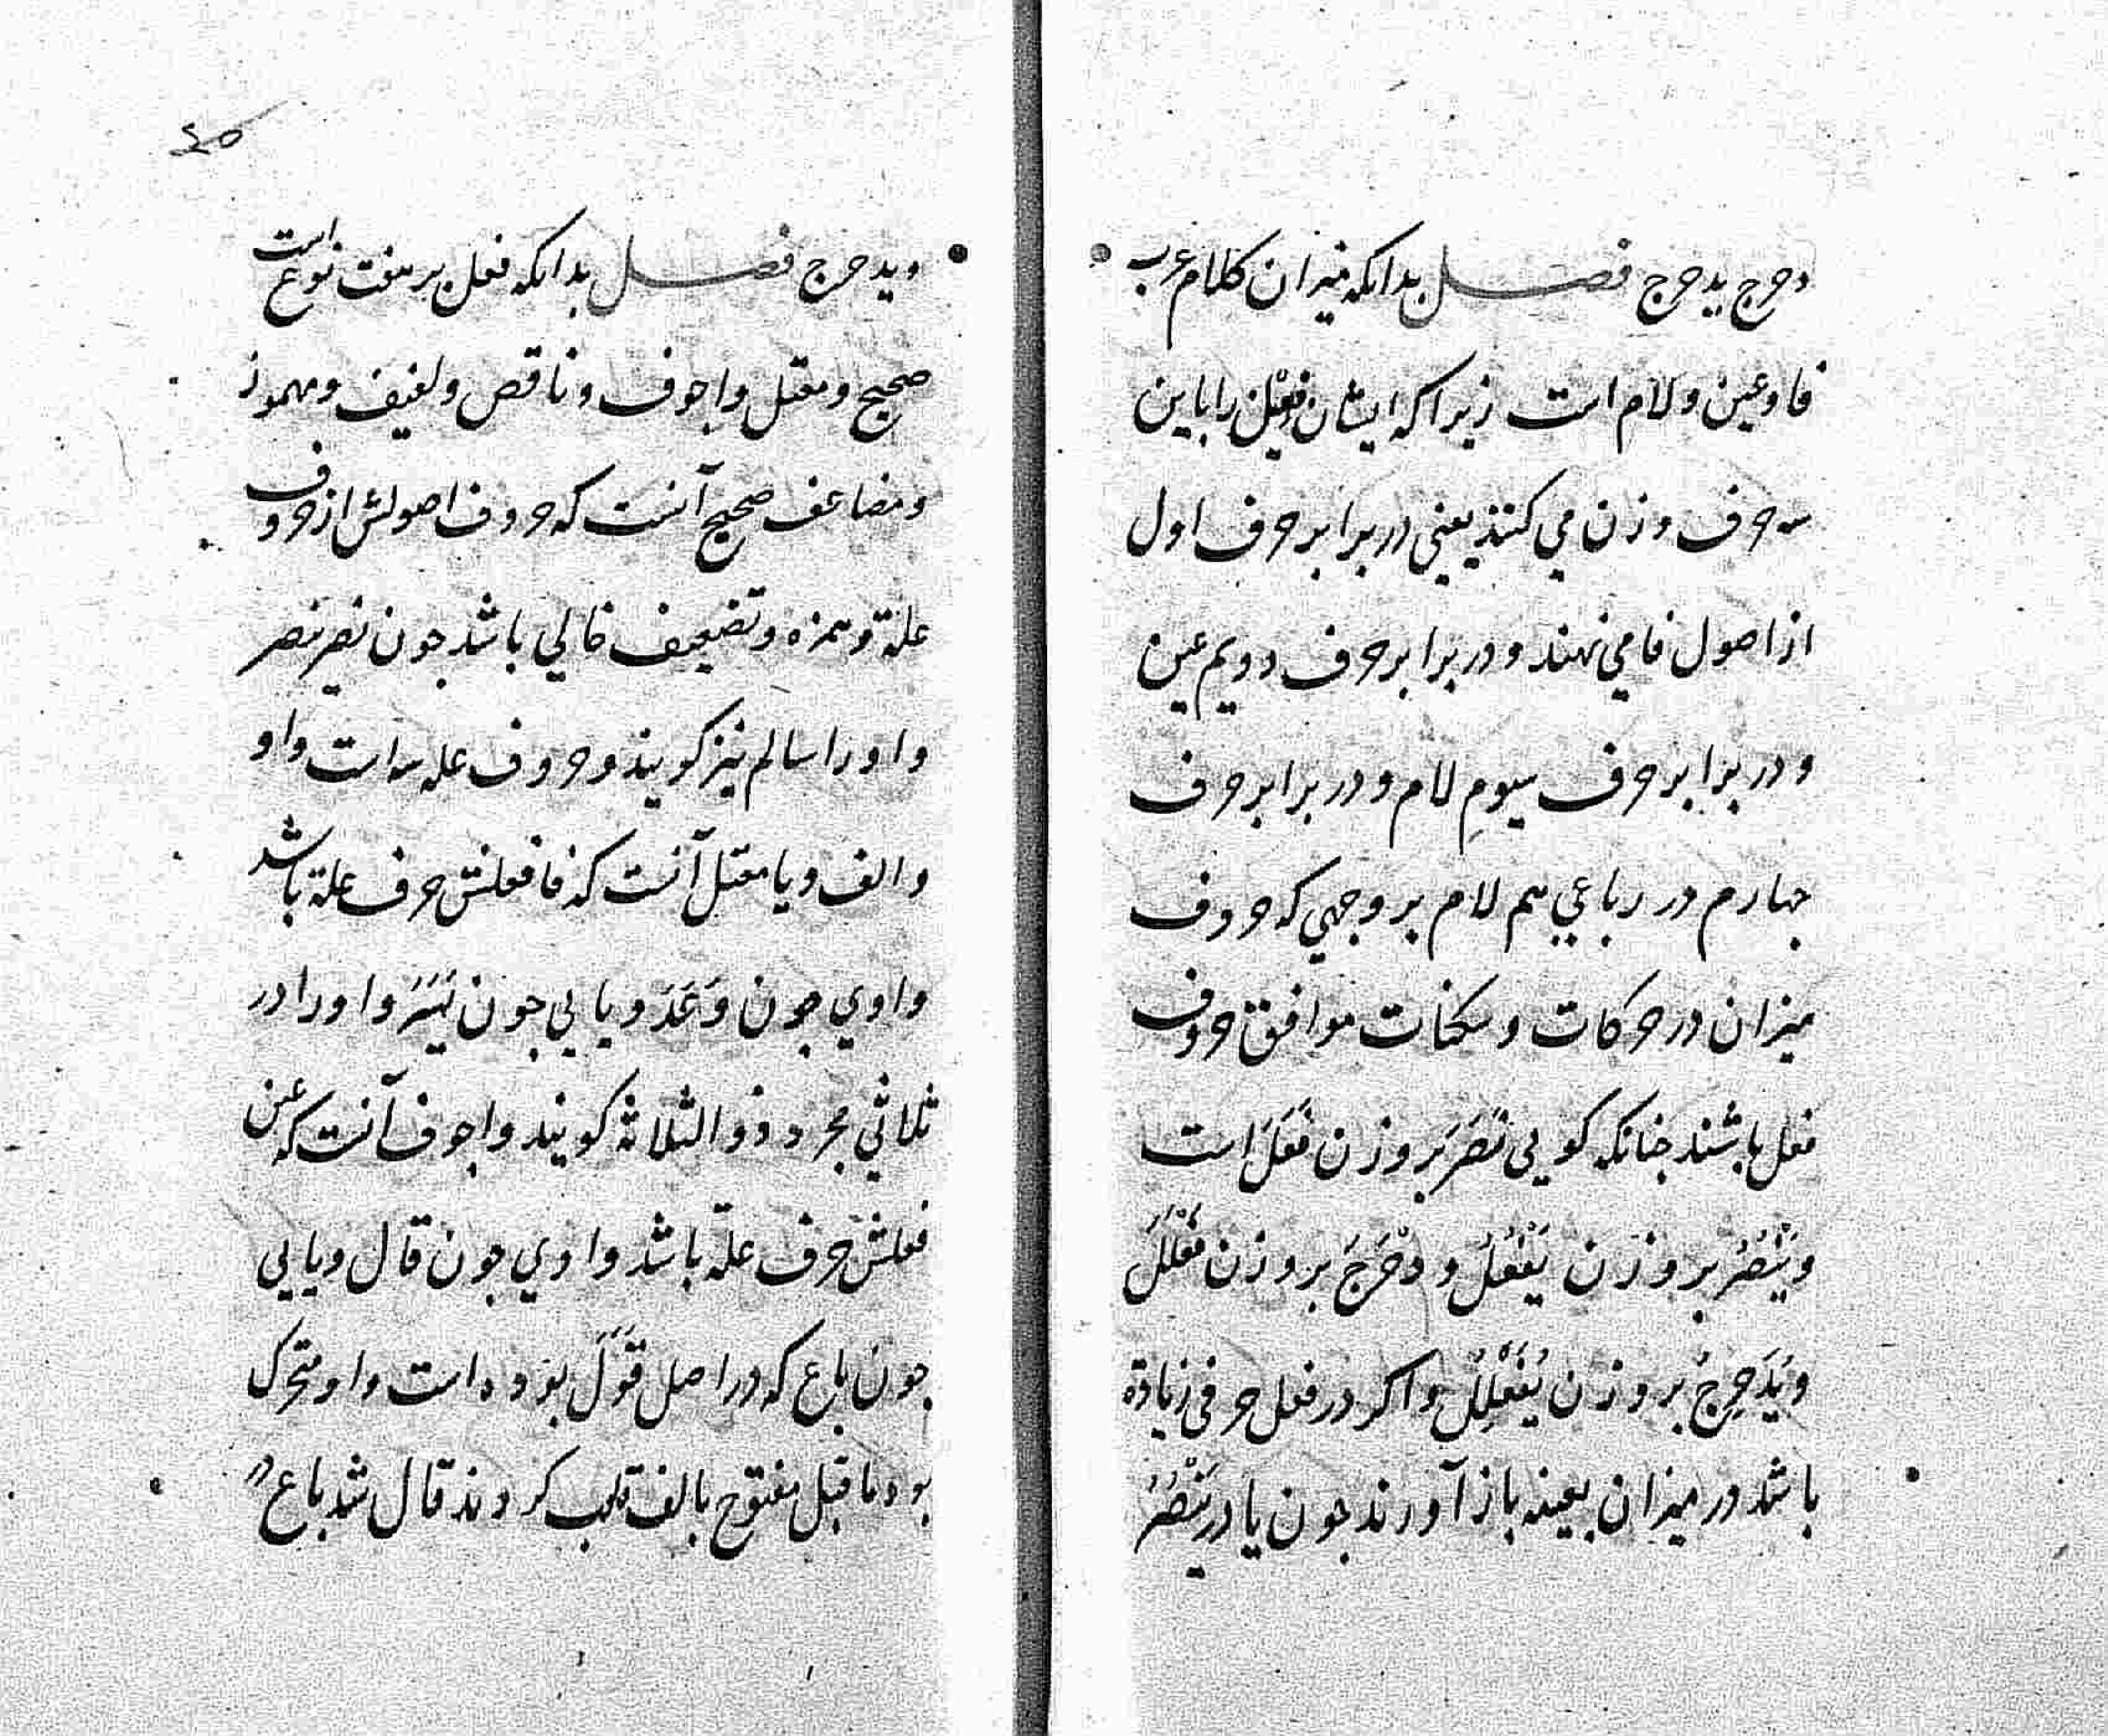 دحرج یدحرج فصل بدانکه میزان کلام عرب
فا و عین و لام است زیرا که ایشان فعل را باین
سه حرف وزن می کنند یعنی در برابر حرف اول
از اصول فا می نهند و در برابر حرف دویم عین
و در برابر حرف سیوم لام و در برابر حرف
جهارم در رباعی هم لام بر وجهی که حروف
میزان در حرکات و سکنات موافق حروف
فعل باشند جنانکه کویی نَصَرَ بر وزن فَعَلَ است
و یَنْصُرُ بر وزن یَفْعُلُ و دَحْرَجَ بر وزن فَعْلَلَ
و یُدَحرِجُ بر وزن یُفَعْلِلُ و اکر در فعل حرفی زیادة
باشد در میزان بعینه باز آورند جون یا در یَنْصُرُ
40
و یدحرج فصل بدانکه فعل بر هفت نوع است
صحیح و معتل و اجوف و ناقص و لفیف و مهموز
و مضاعف صحیح آنست که حروف اصولش از حروف
علة و همزه و تضعیف خالی باشد جون نصر ینصر
و او را سالم نیز کویند و حروف عله سه است واو
و الف و یا معتل آنست که فا فعلش حرف علة باشد
واوی جون وَعَدَ و یایی جون یَسَرَ و او را در
ثلاثی مجرد ذو الثلاثة کویند و اجوف آنست که عین
فعلش حرف علة باشد واوی جون قال و یایی
جون باع که در اصل قَوَلَ بوده است واو متحرک
بود ما قبل مفتوح بالف قلب کردند قال شد باع